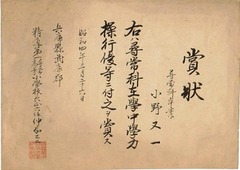 賞状
尋常科卒業
小野又一
右ハ尋常科在學中學力
操行優等ニ付之ヲ賞ス
昭和四年三月二十六日
兵庫縣武庫郡